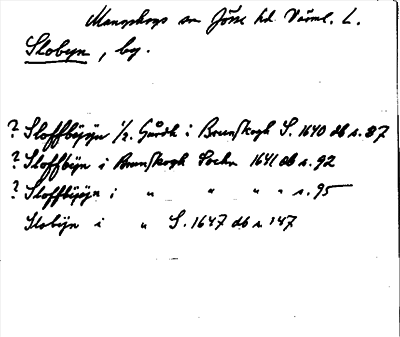 Mangskogs sn Jösse hd. Värml. L.
Slobyn, by.
? Sloffbÿÿn 1/2 Gårdh i Brunskogh S. 1640 db s. 87
? Sloffbÿn i Brunskogh Sochn 1641 db s. 92
? Sloffbÿÿn i " " " " s. 95
Slobÿn i " S. 1647 db s. 147